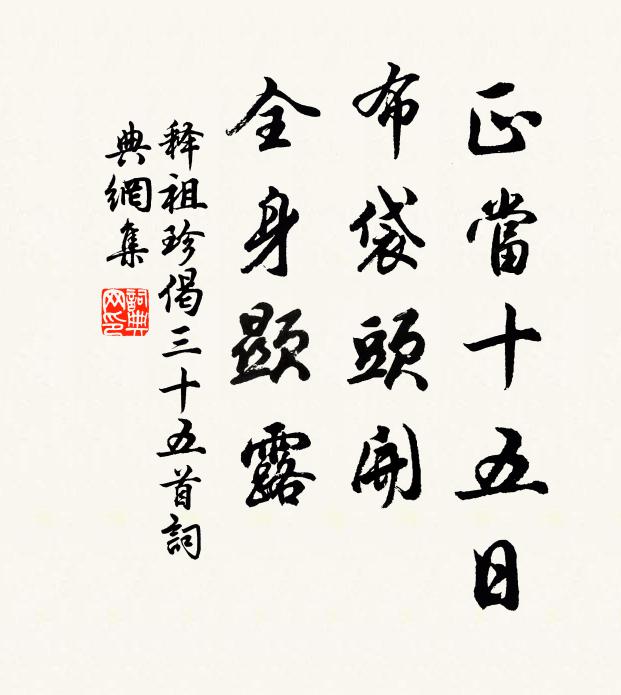 正當十五日
布袋頭開
全身顯露
释祖珍偈三十五首詞
典網集
詞典网印